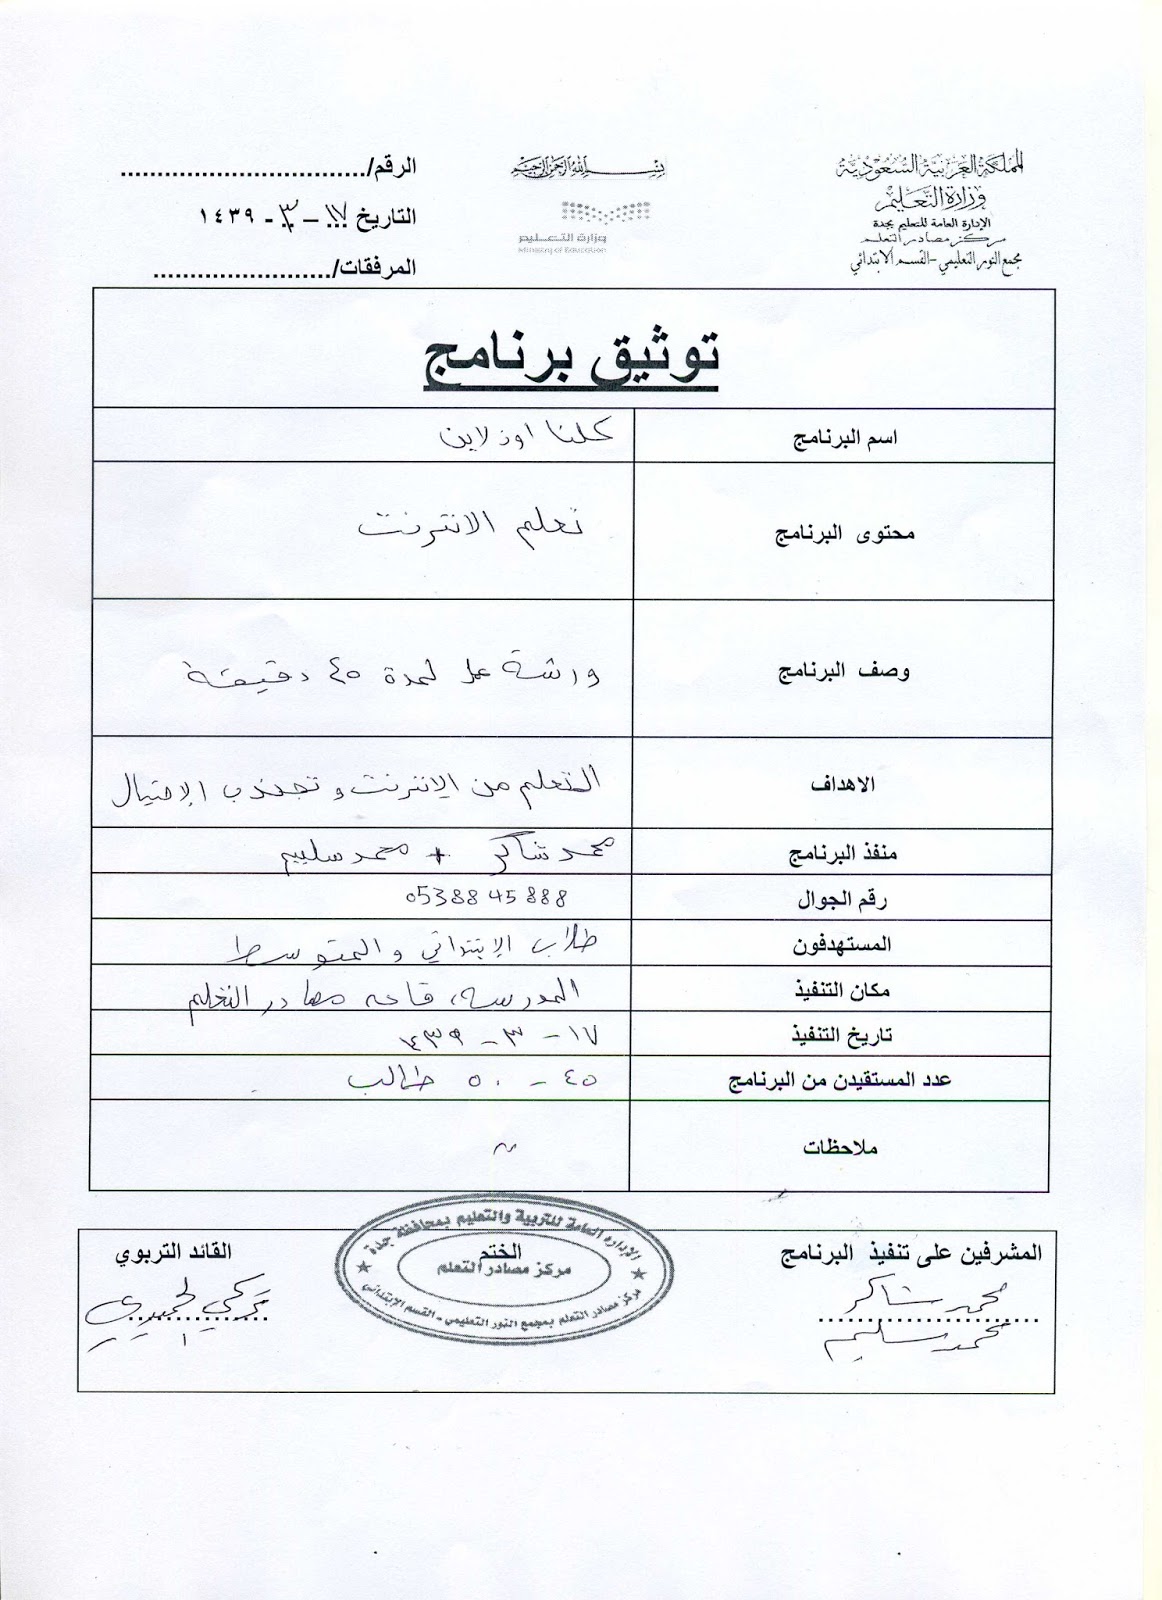 المملكة العربية السعودية
وزارة التعليم
الإدارة العامة للتعليم بجدة
مركز مصادر التعلم
مجمع النور التعليمي - القسم الابتدائي
بسم الله الرحمن الرحيم
وزارة التعليم
Ministry of Education
الرقم/................................
التاريخ ١٧ - ٣ - ١٤٣٩
المرفقات/.......................
توثيق برنامج
اسم البرنامج كلنا اونلاين
محتوى البرنامج تعليم الانترنت
وصف البرنامج ورشة عمل لمدة ٤٥ دقيقة
الاهداف التعلم من الانترنت و تجنب الإحتيال
منفذ البرنامج محمد شاكر + محمد سليم
رقم الجوال 0538845888
المستهدفون طلاب الإبتدائي والمتوسط
مكان التنفيذ المدرسه، قاعه مصادر التعلم
تاريخ التنفيذ ١٧ - ٣ - ١٤٣٩
عدد المستقيدن من البرنامج ٤٥ - ٥٠ طالب
ملاحظات
المشرفين على تنفيذ البرنامج
محمد شاكر
محمد سليم
الختم
الإدارة العامة للتربية والتعليم بمحافظة جدة
مركز مصادر التعلم
مركز مصادر التعلم بمجمع النور التعليمي - القسم الإبتدائي
القائد التربوي
تركي الحميدي